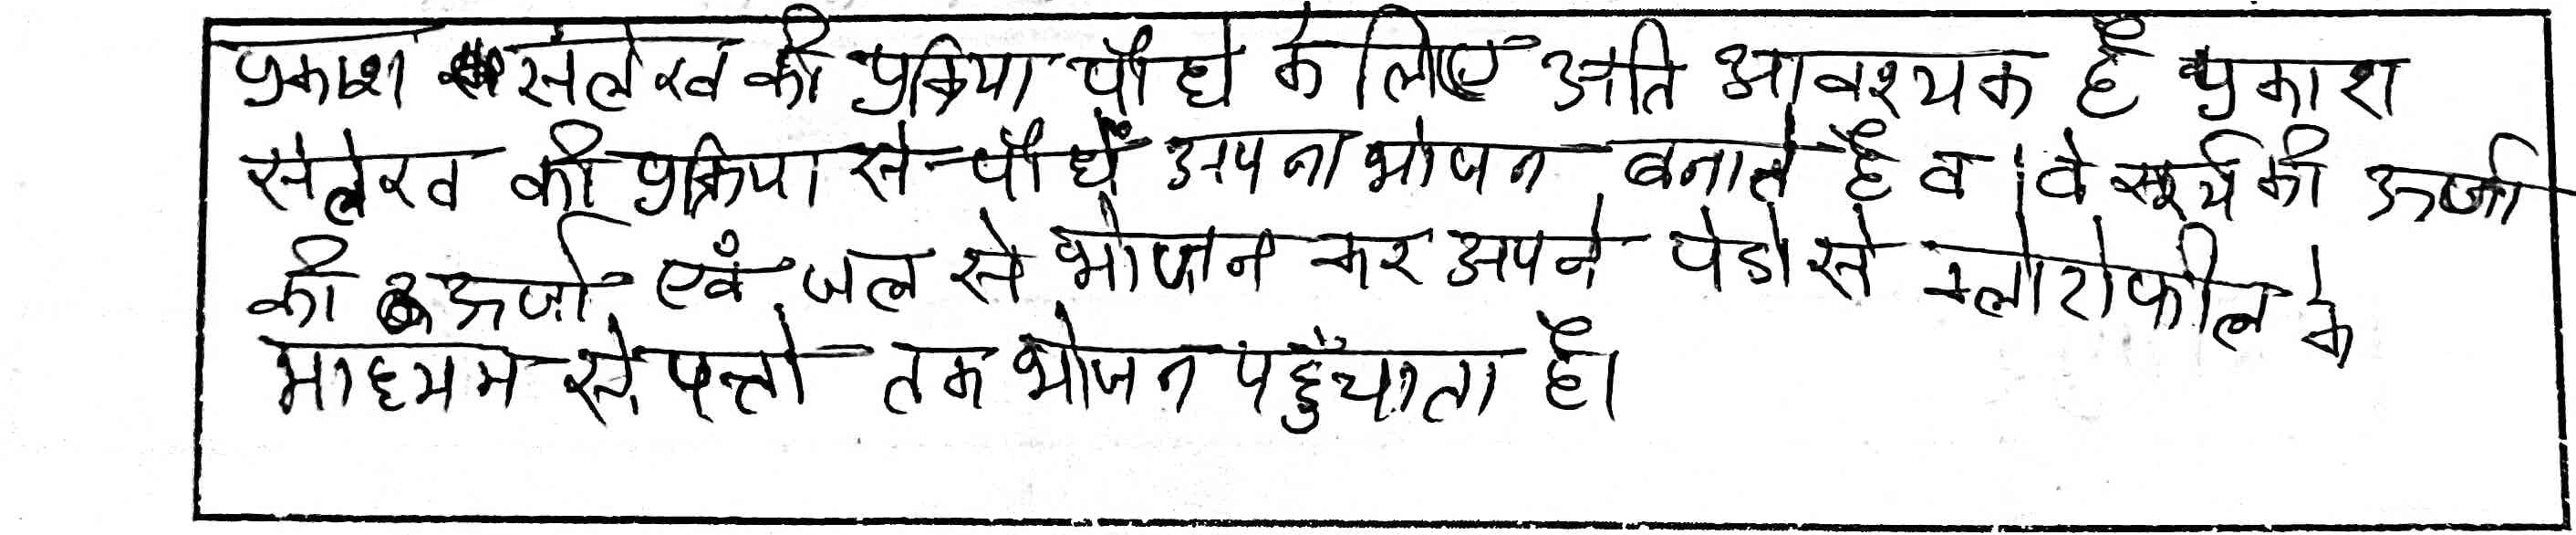 प्रकाश संलेखव की प्रक्रिया पौधे के लिए अति आवश्यक है प्रकाश
संलेखव की प्रक्रिया से पौधें अपना भोजन बनाते है व । वे सूर्य की ऊर्जा
की ऊर्जा एवं जल से भोजन कर अपने पेडो से क्लोरोफील के
माध्यम से पत्तो तक भोजन पहुँचाता है।